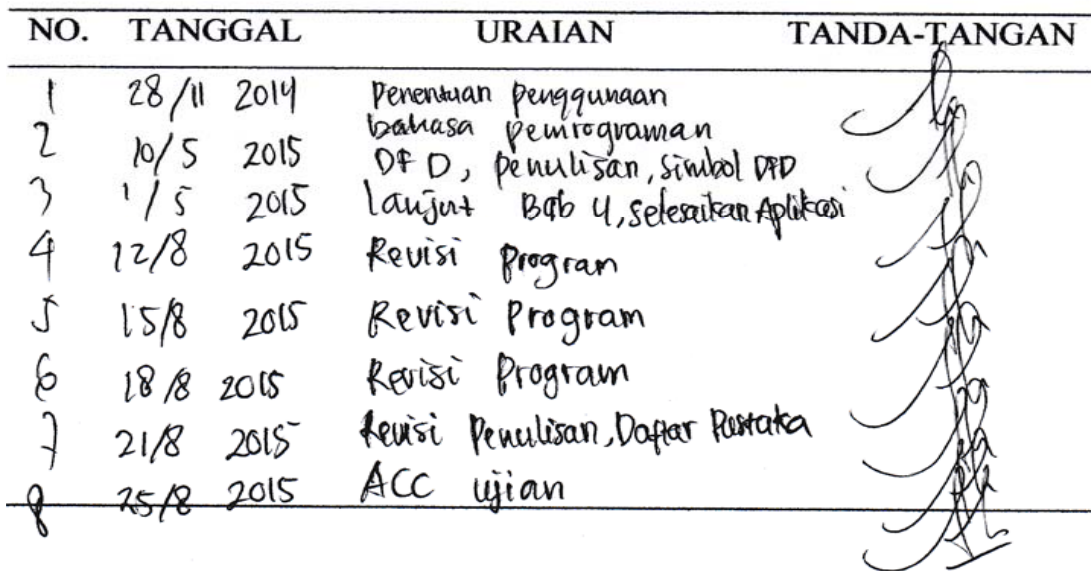 NO. TANGGAL URAIAN TANDA-TANGAN
1 28/11 2014 Penentuan penggunaan
bahasa pemrograman
2 10/5 2015 DFD, penulisan, simbol DFD
3 1/5 2015 lanjut Bab 4, selesaikan Aplikasi
4 12/8 2015 Revisi Program
5 15/8 2015 Revisi Program
6 18/8 2015 Revisi Program
7 21/8 2015 Revisi Penulisan, Daftar Pustaka
8 25/8 2015 ACC ujian